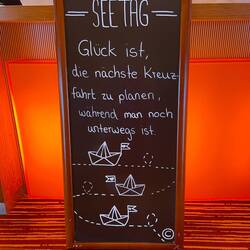 SEETAG
Glück ist,
die nächste Kreuz-
fahrt zu planen,
während man noch
unterwegs ist.
©